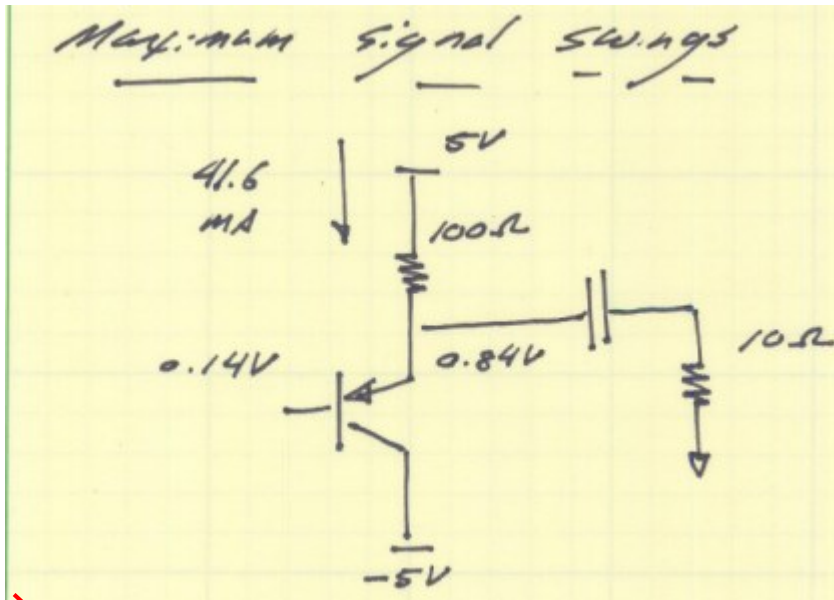 Maximum Signal Swings
5V
41.6
mA
100Ω
0.14V
0.84V
10Ω
-5V